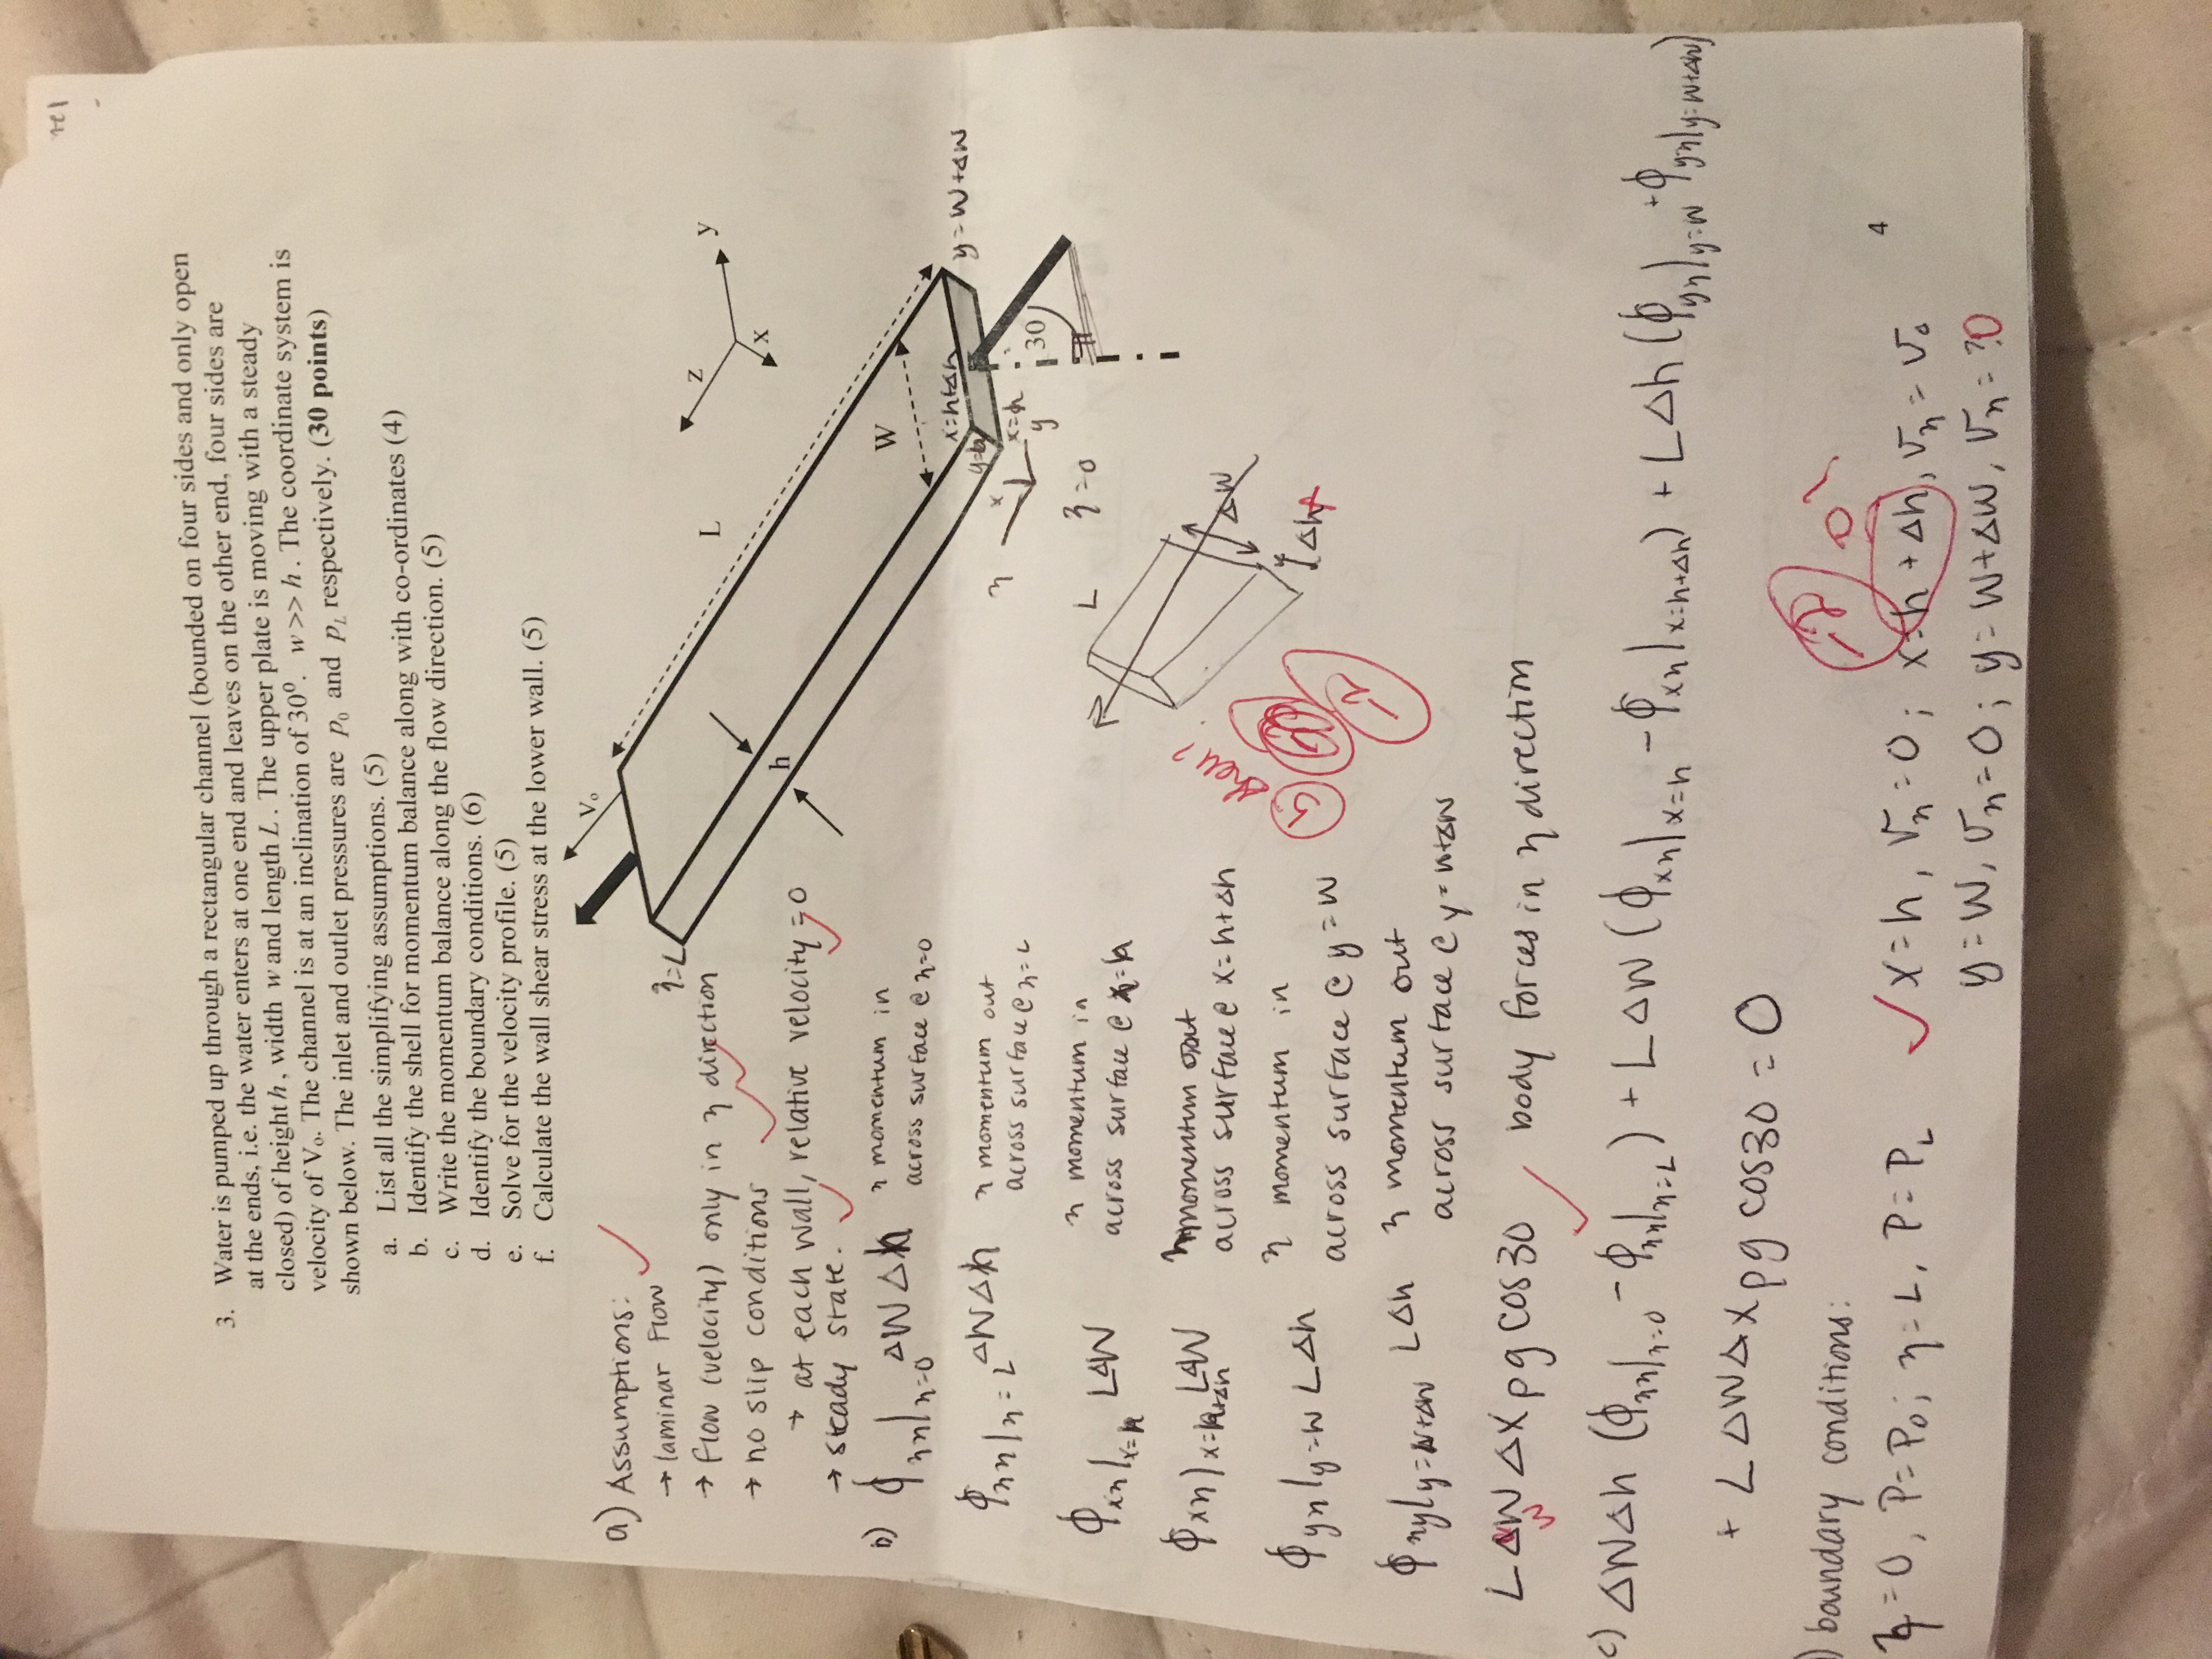 3. Water is pumped up through a rectangular channel (bounded on four sides and only open
at the ends, i.e. the water enters at one end and leaves on the other end, four sides are
closed) of height h, width w and length L. The upper plate is moving with a steady
velocity of Vo. The channel is at an inclination of 30⁰. w >> h. The coordinate system is
shown below. The inlet and outlet pressures are p₀ and p_L respectively. (30 points)
a. List all the simplifying assumptions. (5)
b. Identify the shell for momentum balance along with co-ordinates (4)
c. Write the momentum balance along the flow direction. (5)
d. Identify the boundary conditions. (6)
e. Solve for the velocity profile. (5)
f. Calculate the wall shear stress at the lower wall. (5)
a) Assumptions:
→ laminar flow
→ flow (velocity) only in z direction
→ no slip conditions
→ at each wall, relative velocity = 0
→ steady state.
Vo
z=L
L
z
y
x
h
W
x=h+Δh
y=W+ΔW
x=h
z
x
y
30
z=0
b) ϕzz|z=0 ΔWΔh z momentum in
across surface @ z=0
ϕzz|z=L ΔWΔh z momentum out
across surface @ z=L
ϕxz|x=h LΔW z momentum in
across surface @ x=h
ϕxz|x=h+Δh LΔW z momentum out
across surface @ x=h+Δh
ϕyz|y=W LΔh z momentum in
across surface @ y=W
ϕzy|y=W+ΔW LΔh z momentum out
across surface @ y=W+ΔW
L
ΔW
Δh
b) shell?
-2
LΔWΔxρg cos30 body forces in z direction
W
c) ΔWΔh (ϕzz|z=0 - ϕzz|z=L) + LΔW (ϕxz|x=h - ϕxz|x=h+Δh) + LΔh (ϕyz|y=W + ϕyz|y=W+ΔW)
+ LΔWΔxρg cos30 = 0
) boundary conditions:
-2
0?
z=0, P=P₀; z=L, P=P_L x=h, Vz=0; x=h+Δh, Vz=Vo
y=W, Vz=0; y=W+ΔW, Vz=?0
4